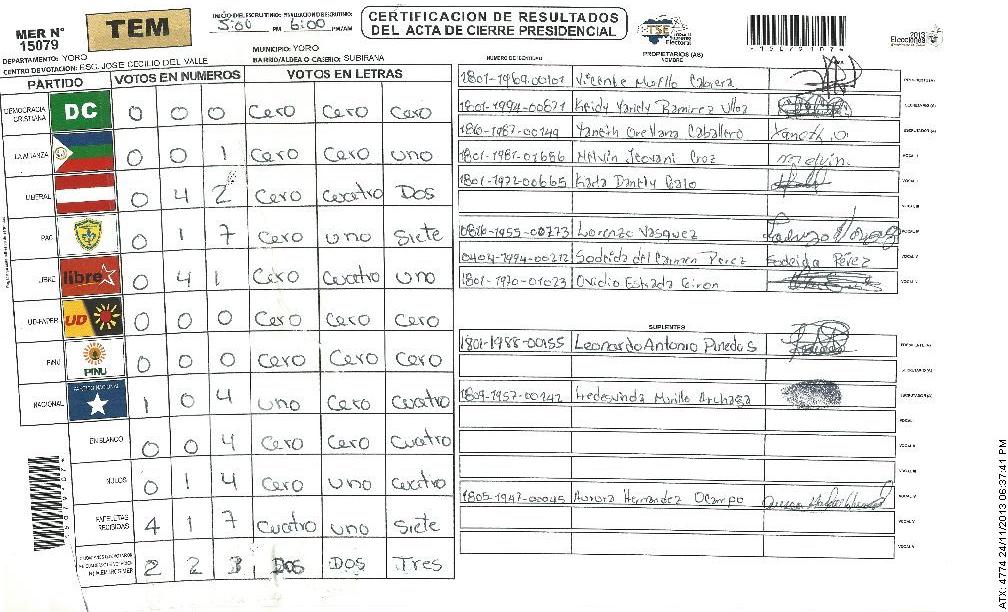 MER N° 15079
TEM
INICIO DEL ESCRUTINIO: 5:00 PM FINALIZACION ESCRUTINIO: 6:00 PM/AM
CERTIFICACION DE RESULTADOS
DEL ACTA DE CIERRE PRESIDENCIAL
TSE
2013
Elecciones
DEPARTAMENTO: YORO
MUNICIPIO: YORO
CENTRO DE VOTACION: ESC. JOSE CECILIO DEL VALLE
BARRIO/ALDEA O CASERIO: SUBIRANA
PARTIDO VOTOS EN NUMEROS VOTOS EN LETRAS
DEMOCRACIA CRISTIANA DC 0 0 0 Cero Cero Cero
LA ALIANZA 0 0 1 Cero Cero uno
LIBERAL 0 4 2 Cero Cuatro Dos
PAC 0 1 7 Cero uno Siete
LIBRE libre 0 4 1 Cero Cuatro uno
UD-FAPER UD 0 0 0 Cero Cero Cero
PINU PINU 0 0 0 Cero Cero Cero
NACIONAL 1 0 4 uno Cero Cuatro
EN BLANCO 0 0 4 Cero Cero Cuatro
NULOS 0 1 4 Cero uno Cuatro
PAPELETAS RECIBIDAS 4 1 7 Cuatro uno Siete
2 2 3 Dos Dos Tres
NUMERO DE IDENTIDAD
PROPIETARIOS (AS)
NOMBRE
1801-1969-00101 Vicente Murillo Cabrera
1801-1994-00871 Keidy Yariely Ramirez Ulloa
1801-1987-00149 Yaneth Orellana Caballero Yaneth O
1801-1981-01656 Melvin Jeovani Cruz Melvin
1801-1972-00665
1806-1955-00773 Lorenzo Vasquez
0404-1994-00212 Sodeida del Carmen Perez Sodeida Pérez
1801-1970-01023 Ovidio Estrada Giron
SUPLENTES
1801-1988-00155 Leonardo Antonio Pinedos
1809-1957-00142 Fredesinda Murillo Archaga
1805-1947-00045 Aurora Hernandez Ocampo
ATX: 4774 24/11/2013 06:37:41 PM